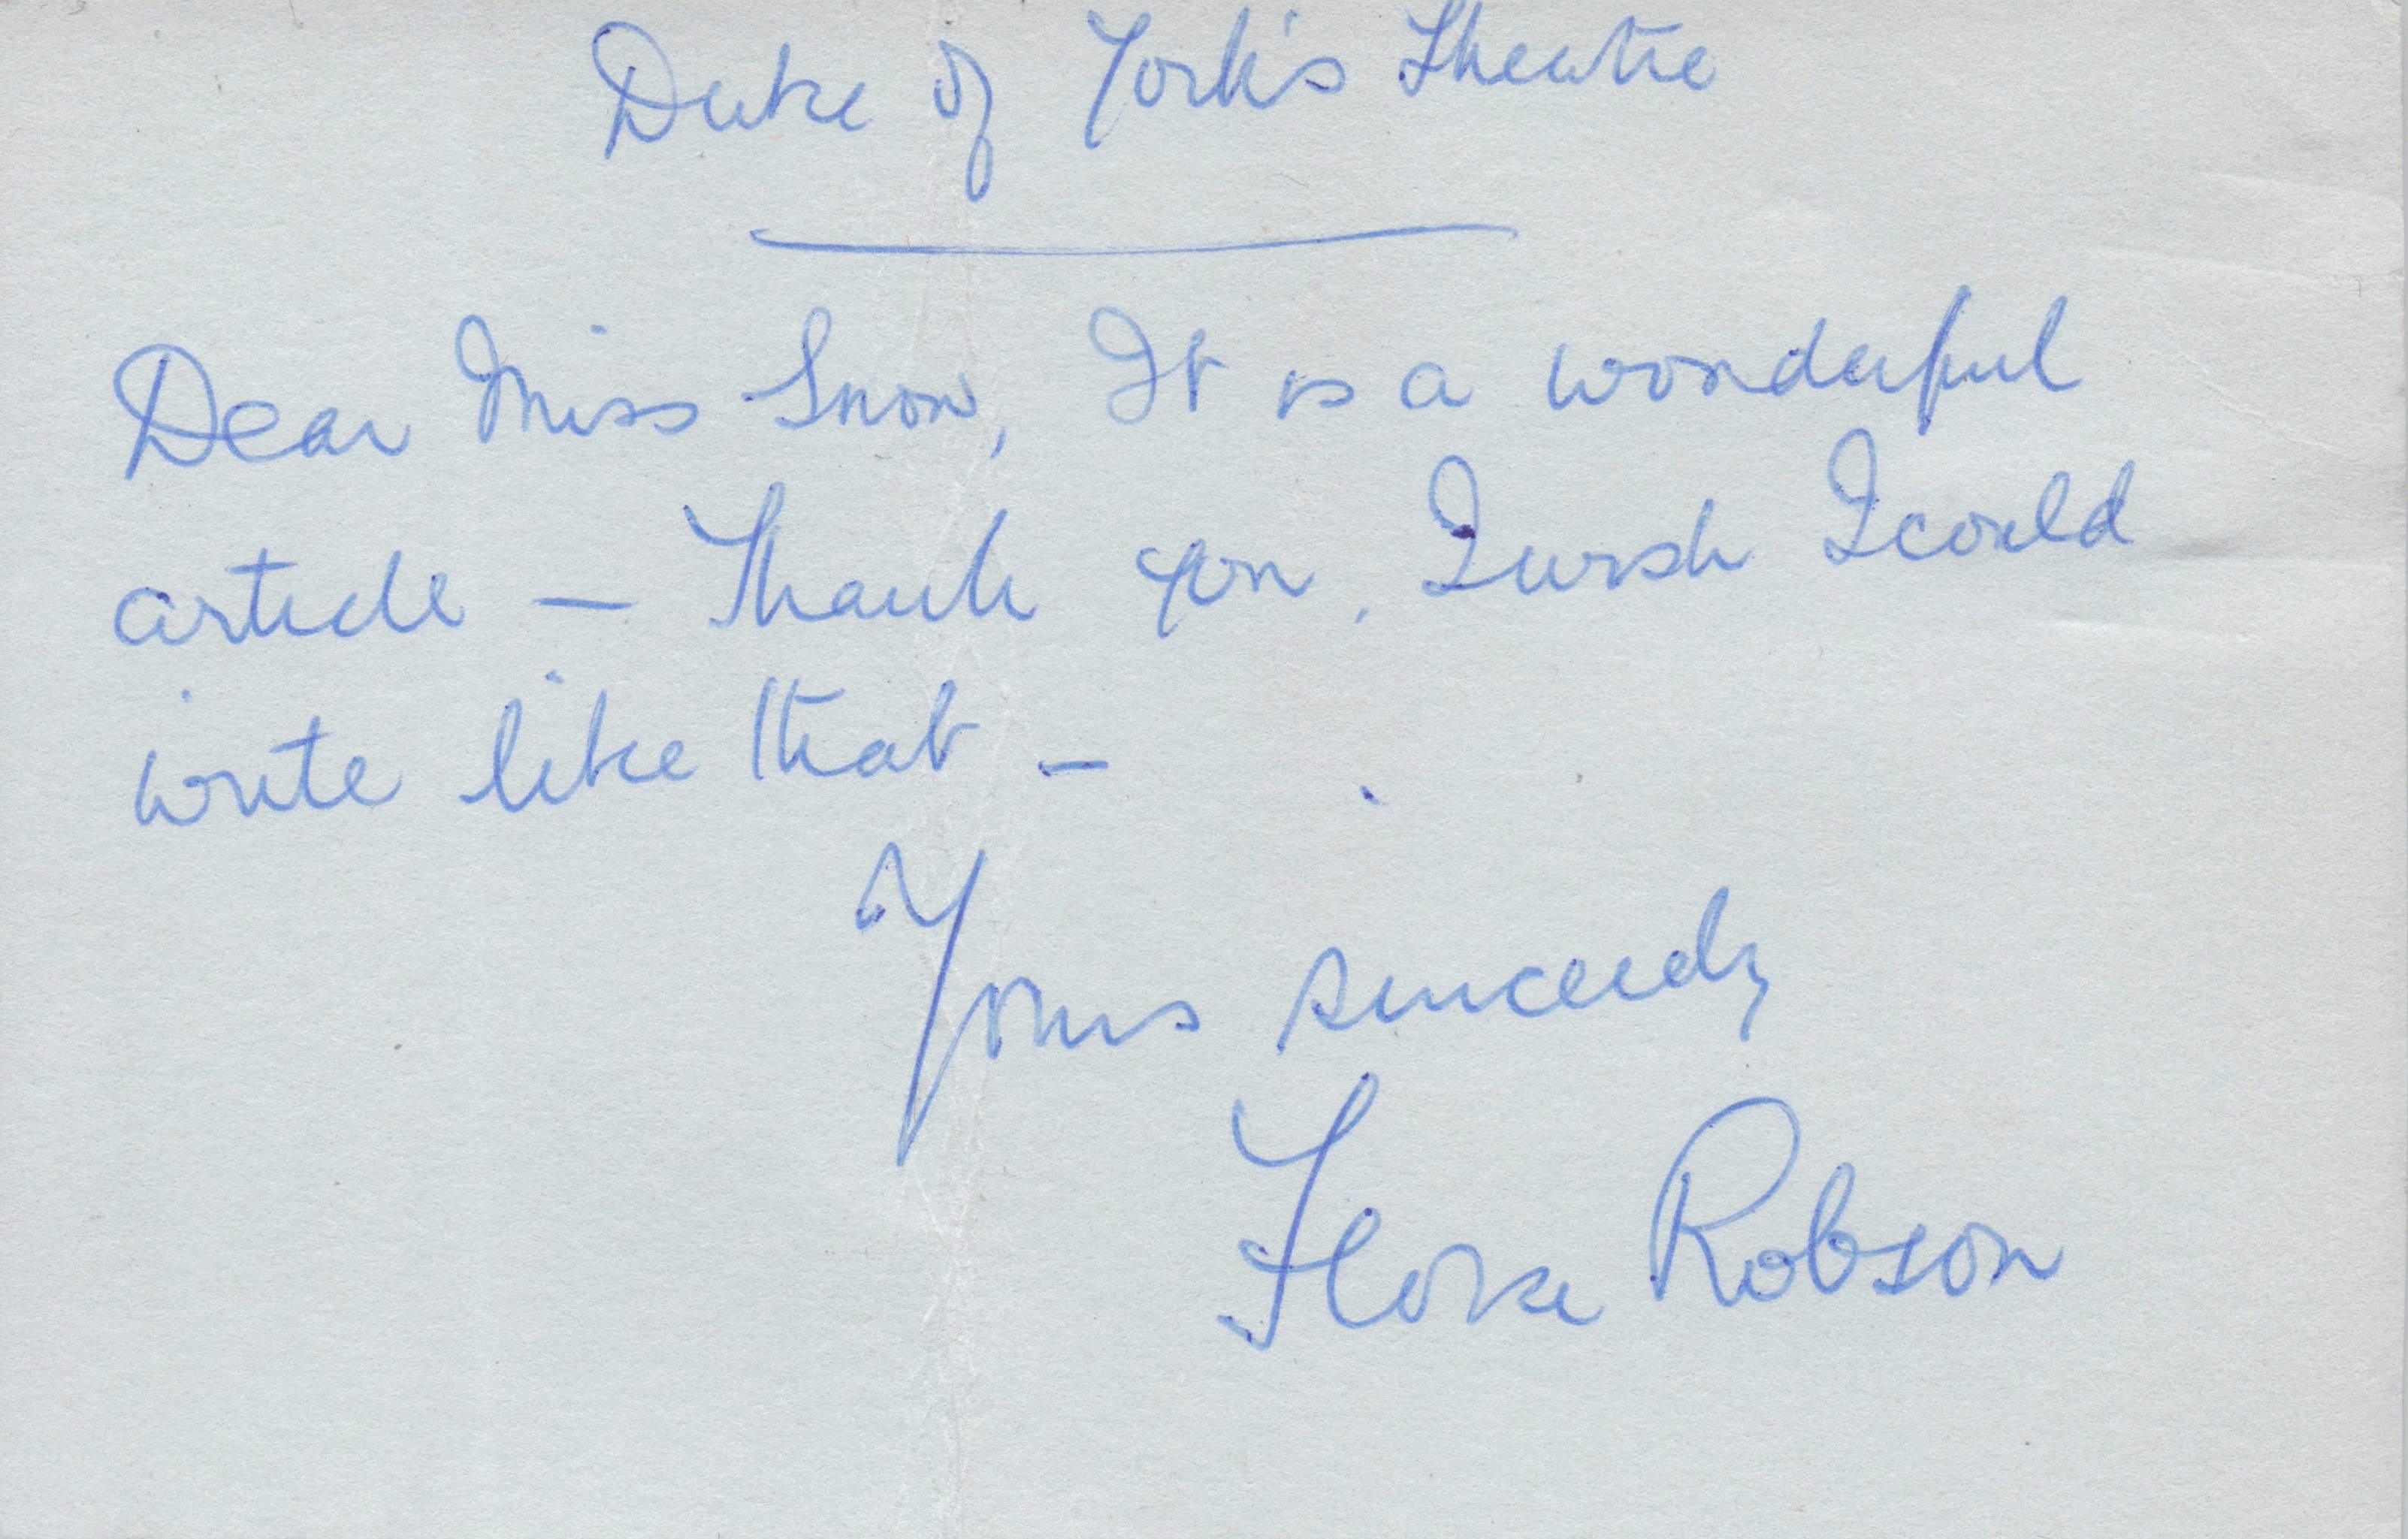 Duke of York's Theatre
Dear Miss Snow, It is a wonderful
article — Thank you. I wish I could
write like that —
Yours sincerely
Flora Robson